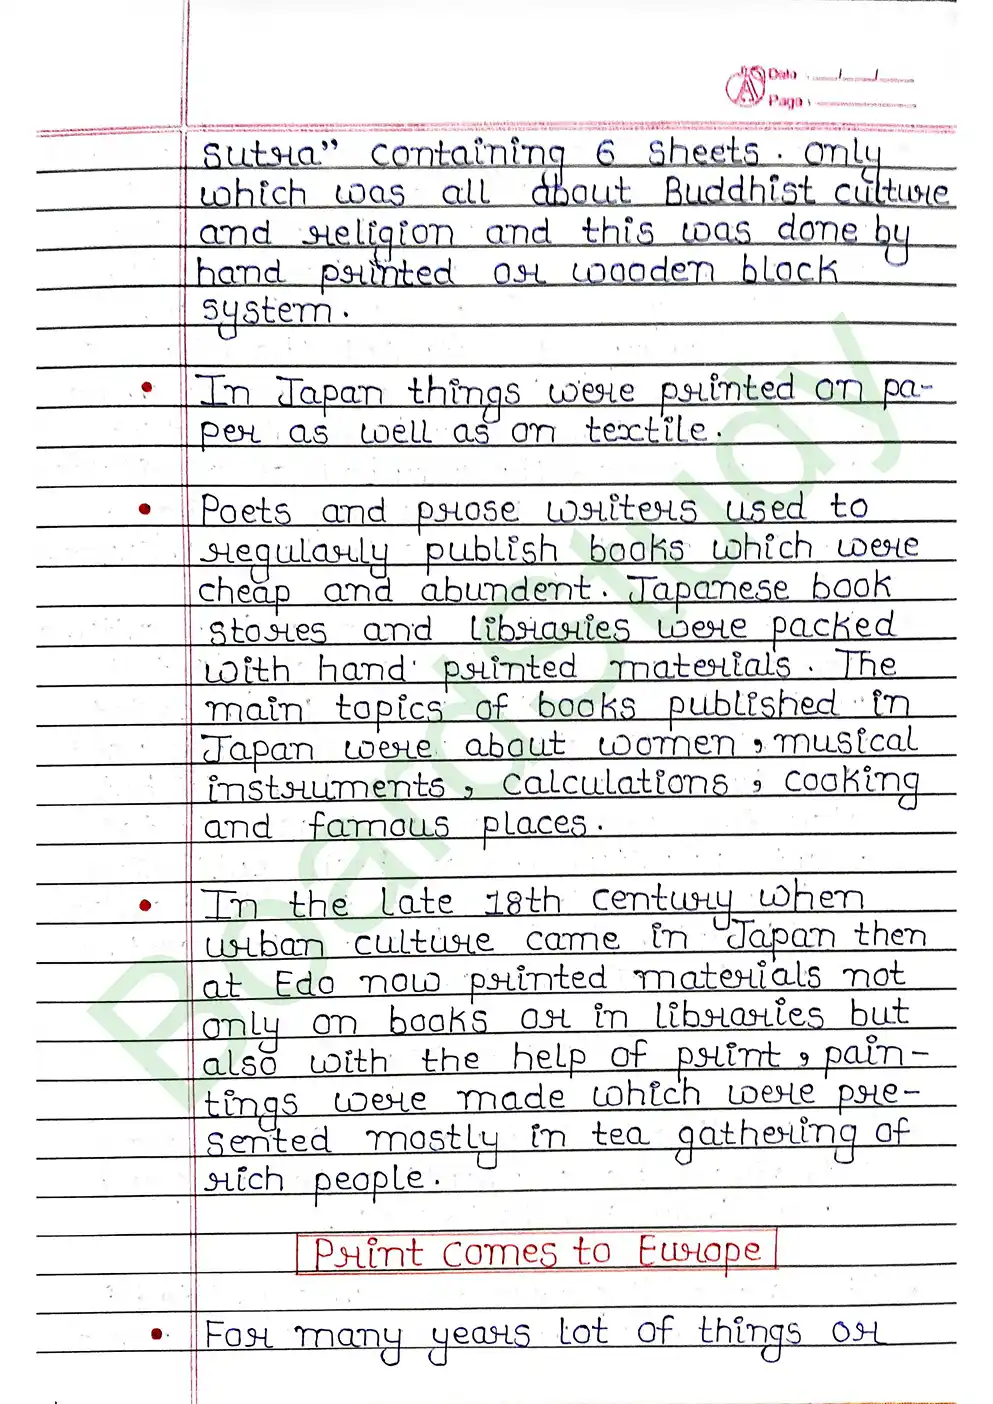 Date :
Page :
sutra" containing 6 sheets. only
which was all about Buddhist culture
and religion and this was done by
hand printed or wooden block
system.
• In Japan things were printed on pa-
per as well as on textile.
• Poets and prose writers used to
regularly publish books which were
cheap and abundent. Japanese book
stores and libraries were packed
with hand printed materials. The
main topics of books published in
Japan were about women, musical
instruments, calculations, cooking
and famous places.
• In the late 18th century when
urban culture came in Japan then
at Edo now printed materials not
only on books or in libraries but
also with the help of print, pain-
tings were made which were pre-
sented mostly in tea gathering of
rich people.
Print comes to Europe
• For many years lot of things or
BoardStudy